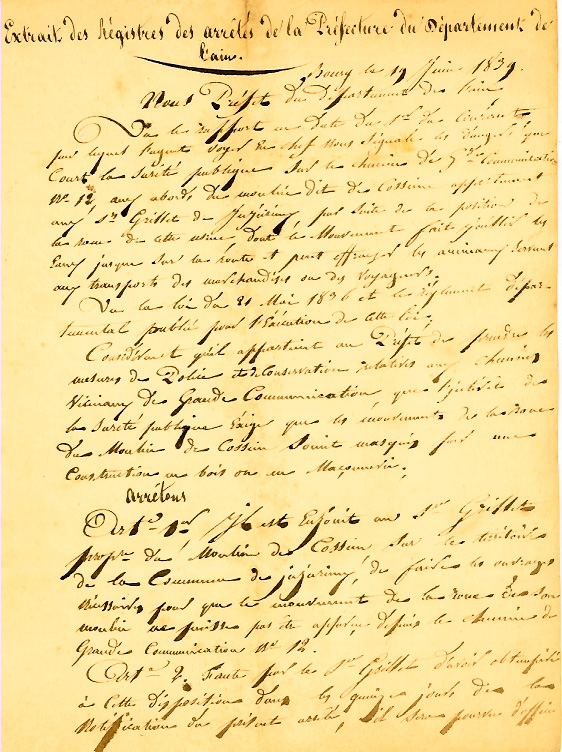 Extrait des Régistres des arrêtés de la Préfecture du Département de
l'ain.
Bourg le 19 Juin 1839.
Nous Préfet du Département de l'ain
Vu le rapport en date du 1er de Courant
par lequel l'agent voyer En chef nous Signale les dangers que
Court la Sureté publique Sur le chemin de Gde Communication
No 12, aux abords du moulin dit de Cossieu appartenant
aux Sr Grillet de Jujurieux par Suite de la position de
la roue de cette usine, dont le Mouvement fait jaillir les
Eaux jusque Sur la route et peut effrayer les animaux Servant
aux transports des marchandises ou des Voyageurs.
Vu la loi du 21 Mai 1836 et le réglement dépar-
temental publié pour l'Exécution de cette loi;
Considérant qu'il appartient au Préfet de prendre les
mesures de Police et de Conservation relatives aux Chemins
Vicinaux de Grande Communication que l'intérêt de
la Sureté publique Exige que les mouvements de la roue
du Moulin de Cossieu Soient masqués par une
Construction en bois ou en Maçonnerie;
arrêtons
Art. 1er Il est Enjoint au Sr Grillet
propre du Moulin de Cossieu Sur le territoire
de la Commune de jujurieux, de faire les ouvrages
nécessaires pour que le mouvement de la roue de son
moulin ne puisse pas être apperçu depuis le chemin de
Grande Communication No 12.
Art. 2. Faute par le Sr Grillet d'avoir obtempéré
à Cette disposition dans les quinze jours de la
Notification du présent arrêté, il sera pourvu d'office